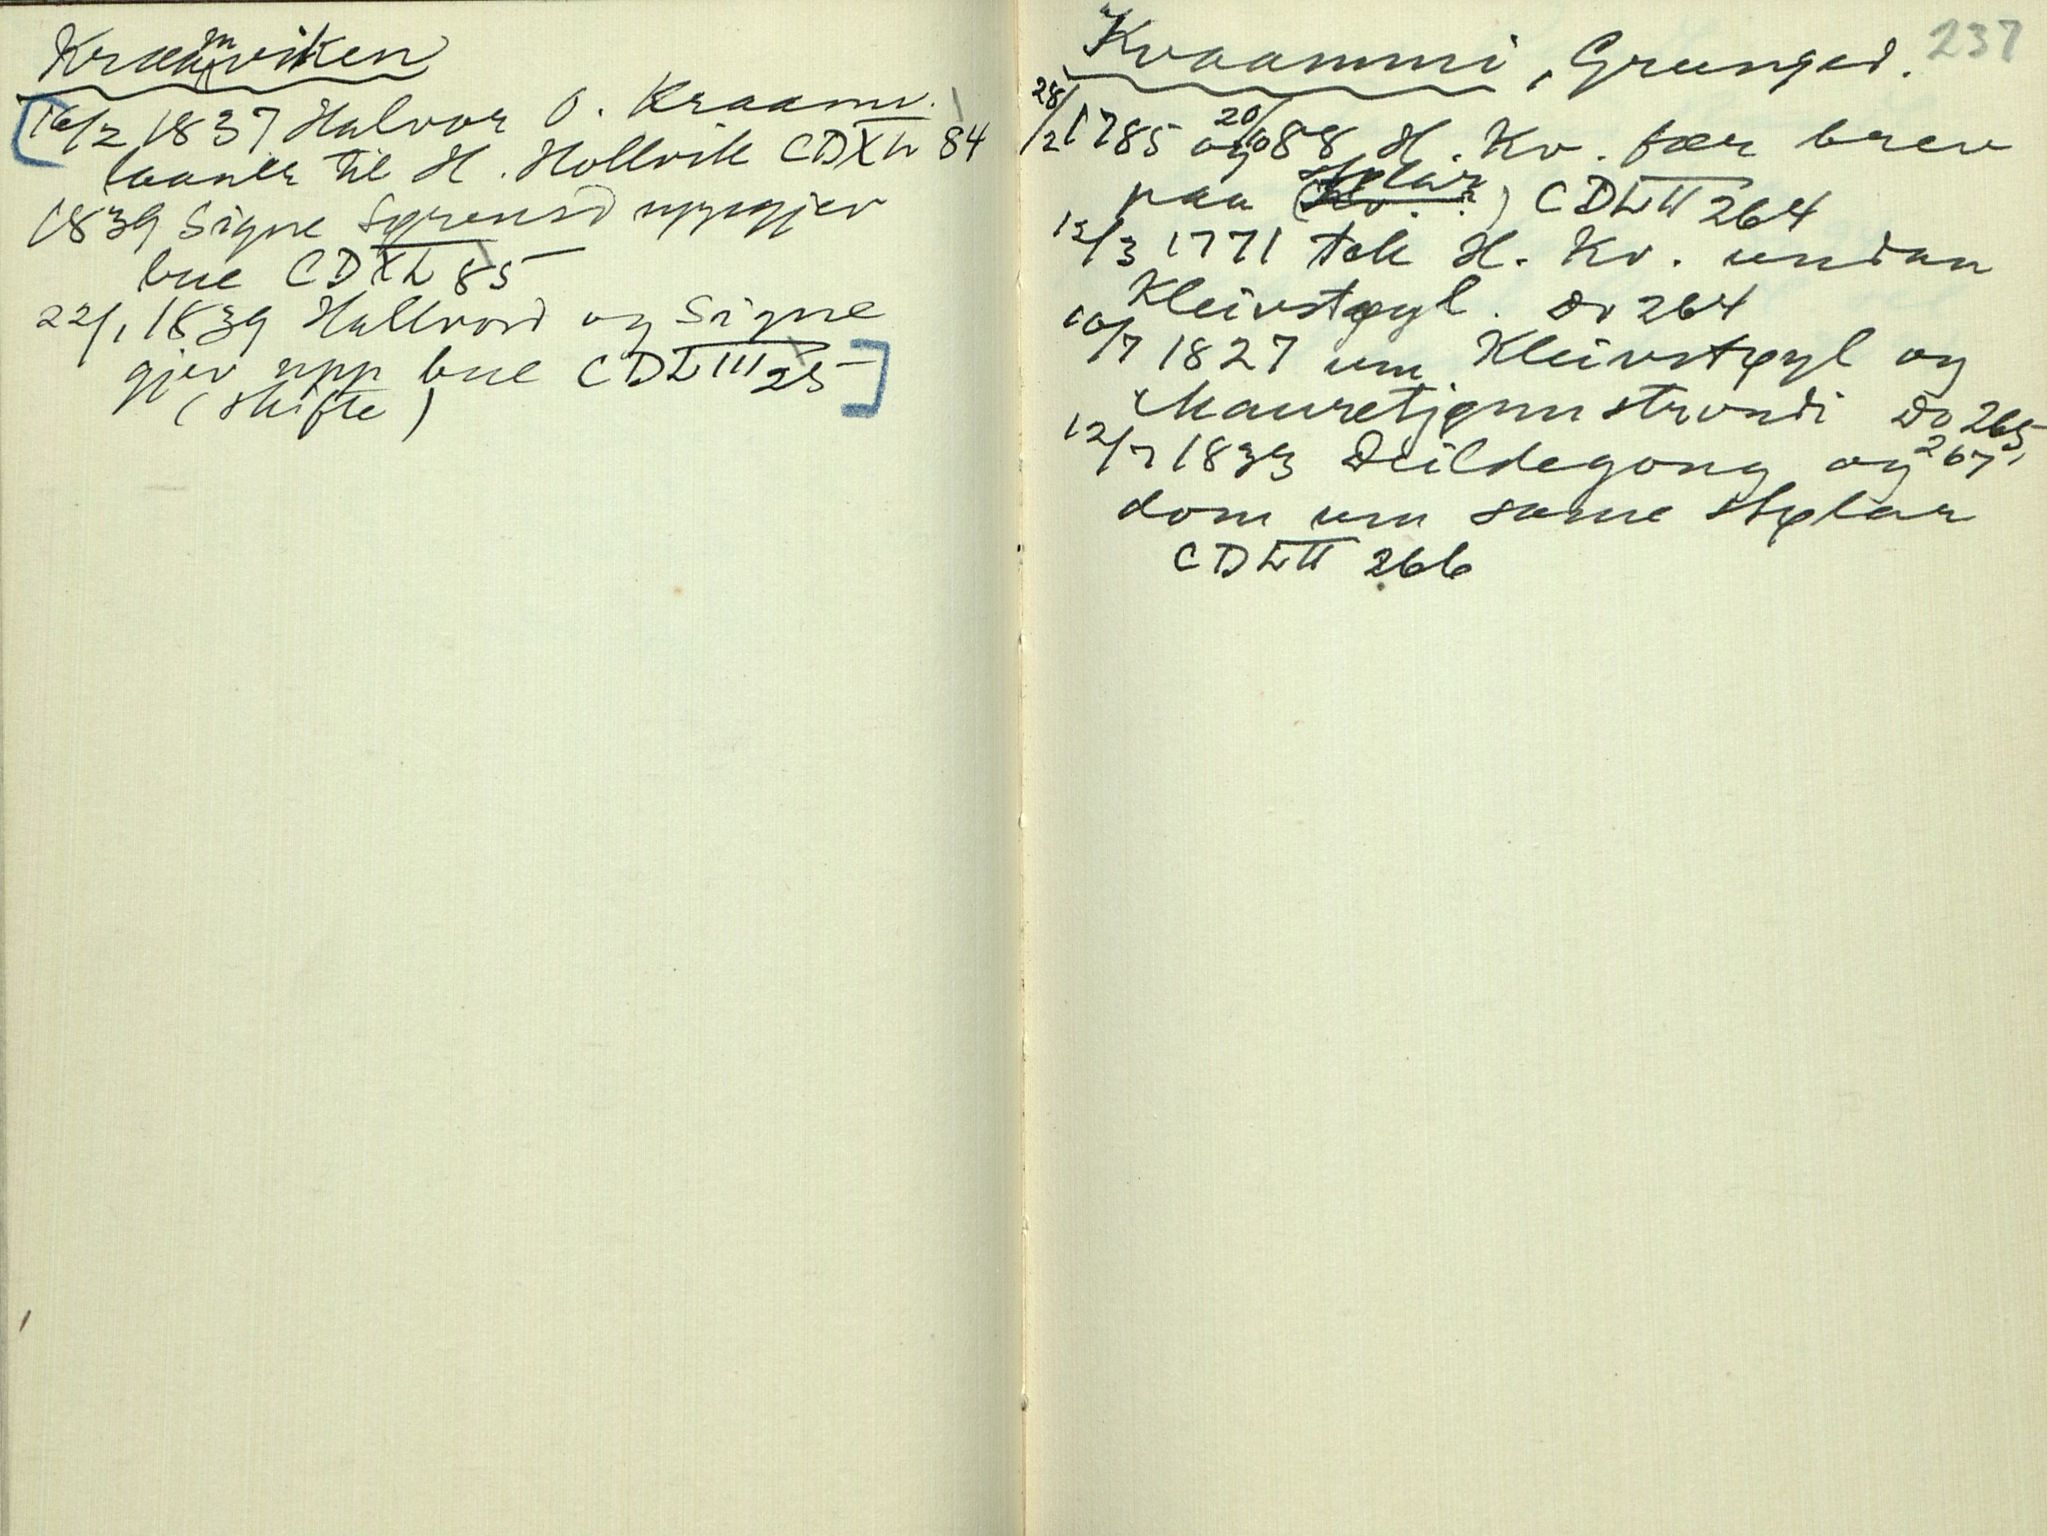 Kraamviken
16/2 1837 Halvor O. Kraamv.
laaner til H. Hollvik CDXL 84
1839 Signe Sørensd uppgjev
bue CDXL 85
22/1 1839 Hallvord og Signe
gjev upp bue CDLIII 25
(skifte)
237
Kvaammi, Grungad.
28/2 1785 og 20/10 88 H. Kv. fær brev
paa (Stølar) CDLII 264
12/3 1771 tek H. Kv. undan
Kleivstøyl. Do 264
10/7 1827 um Kleivstøyl og
Mauretjønnstrondi Do 265,
267
12/7 1833 Deildegong og
dom um same stølar
CDLII 266